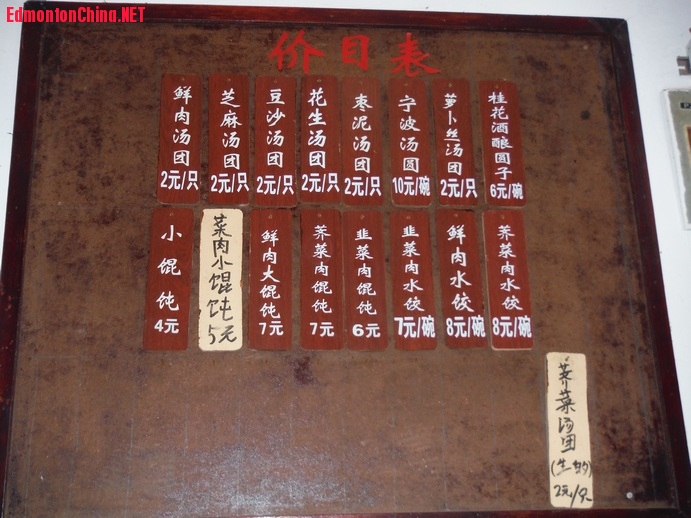 EdmontonChina.NET
价目表
鲜肉汤团
2元/只
芝麻汤团
2元/只
豆沙汤团
2元/只
花生汤团
2元/只
枣泥汤团
2元/只
宁波汤圆
10元/碗
萝卜丝汤团
2元/只
桂花酒酿圆子
6元/碗
小馄饨
4元
菜肉小馄饨
5元
鲜肉大馄饨
7元
荠菜肉馄饨
7元
韭菜肉馄饨
6元
韭菜肉水饺
7元/碗
鲜肉水饺
8元/碗
荠菜肉水饺
8元/碗
荠菜汤团
(生的)
2元/只